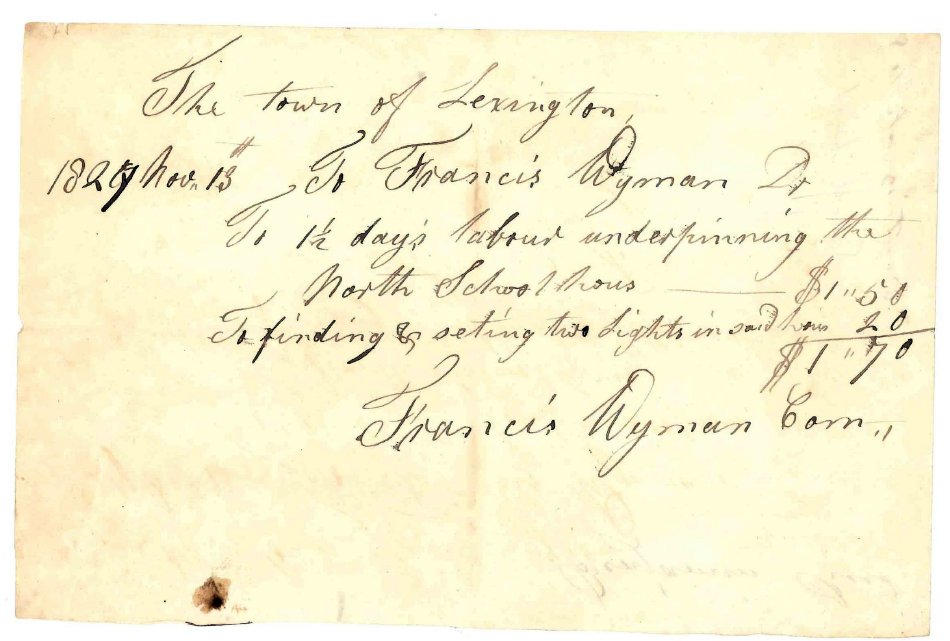 The town of Lexington,
1827 Nov. 13th To Francis Wyman Dr
To 1½ day's labour underpinning the
North School hous —— $1"50
To finding & seting two Lights in said hous 20
$1"70
Francis Wyman Com.,,